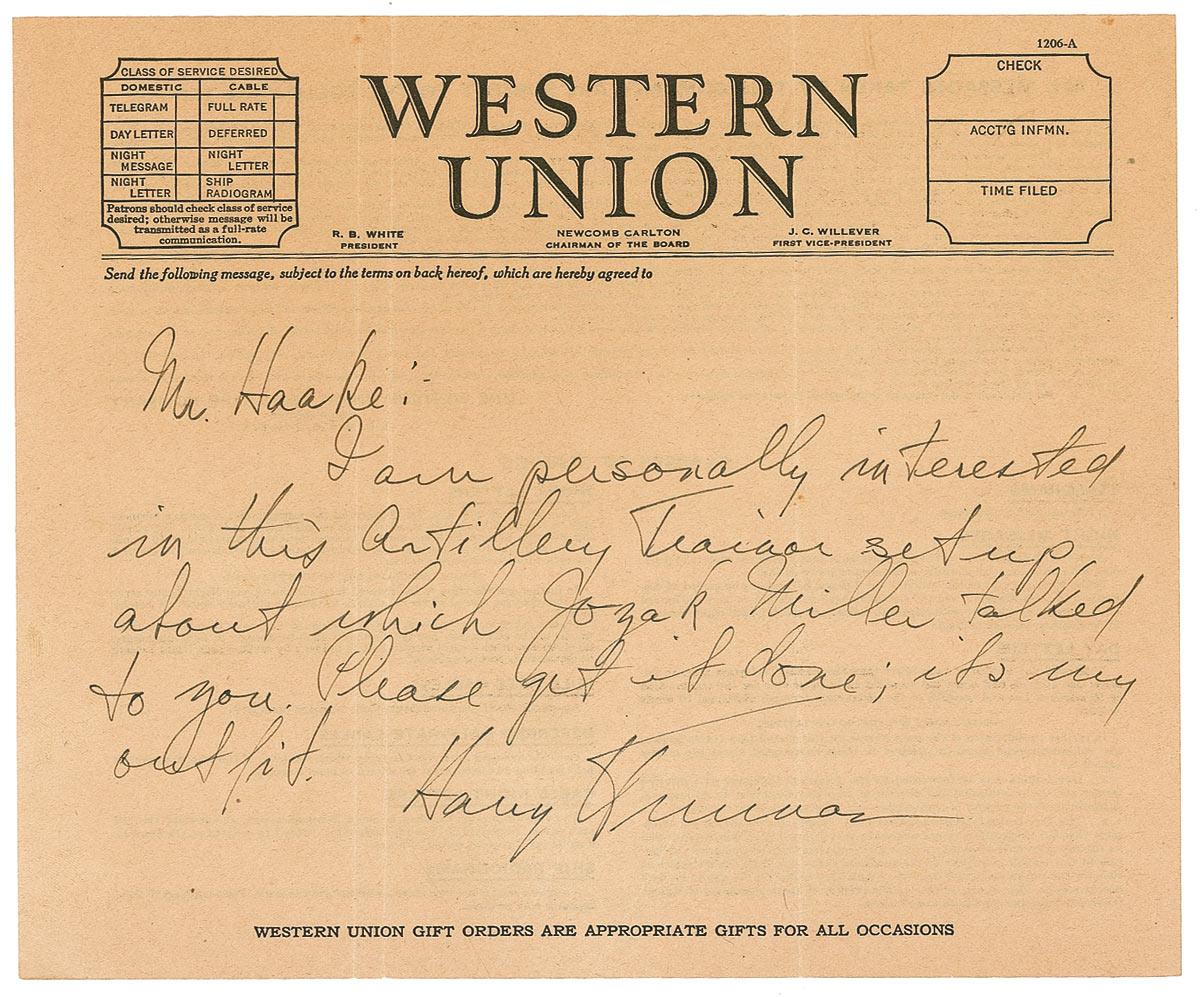 1206-A
CLASS OF SERVICE DESIRED
DOMESTIC CABLE
TELEGRAM FULL RATE
DAY LETTER DEFERRED
NIGHT MESSAGE NIGHT LETTER
NIGHT LETTER SHIP RADIOGRAM
Patrons should check class of service
desired; otherwise message will be
transmitted as a full-rate
communication.
WESTERN
UNION
R. B. WHITE
PRESIDENT
NEWCOMB CARLTON
CHAIRMAN OF THE BOARD
J. C. WILLEVER
FIRST VICE-PRESIDENT
CHECK
ACCT'G INFMN.
TIME FILED
Send the following message, subject to the terms on back hereof, which are hereby agreed to
Mr. Haake:-
I am personally interested
in this Artillery Trainor set up
about which Jozak Miller talked
to you. Please get it done; its my
outfit.
Harry Truman
WESTERN UNION GIFT ORDERS ARE APPROPRIATE GIFTS FOR ALL OCCASIONS